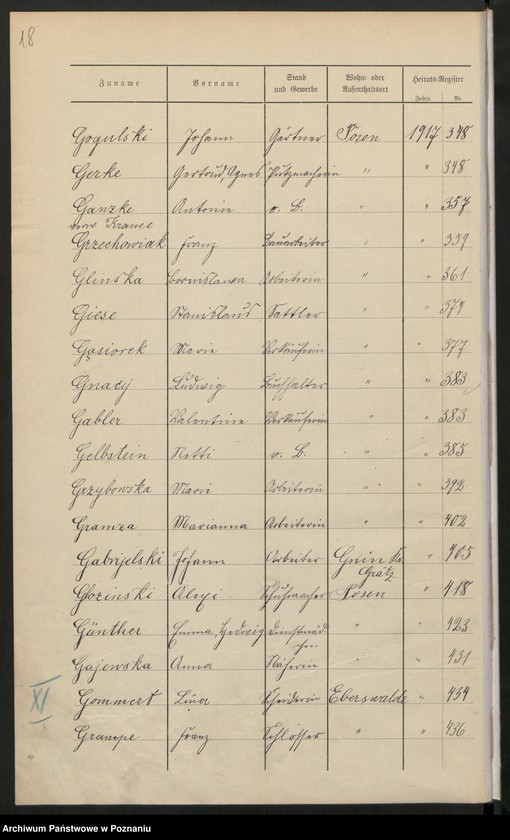 18
Zuname Vorname Stand und Gewerbe Wohn- oder Aufenthaltsort Heirats-Register
Jahrg. Nr.
Gogulski Johann Gärtner Posen 1917 348
Gerke Gertrud, Agnes Putzmacherin " " 348
Ganzke Antonie o. B. " " 357
verw Krause
Grzechowiak Franz Bauarbeiter " " 359
Glinska Bronislawa Arbeiterin " " 361
Giese Stanislaus Sattler " "
Gąsiorek Marie Verkäuferin " " 377
Gnacy Ludwig Buchhalter " " 383
Gabler Valentine Verkäuferin " " 383
Gelbstein Netti o. B. " " 385
Grzybowska Marie Arbeiterin " " 392
Gramza Marianna Arbeiterin " " 402
Gabrijelski Johann Arbeiter Gnin Kr. " 405
Grätz
Glozinski Schuhmacher Posen " 418
Günther Emma, Hedwig Dienstmäd- " " 423
chen
Gajewska Anna Näherin " " 431
XI
Gommert Lina Schneiderin Eberswalde " 434
Grampe Franz Schlosser " " 436
Archiwum Państwowe w Poznaniu